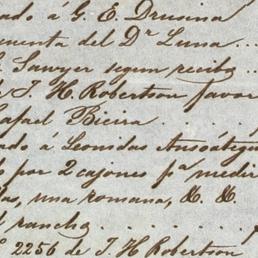 ado á G. E. Drusina
cuenta del Dr Luna
Sawyer segun recibo
J. H. Robertson favor
Rafael Bieira
ado á Leonidas Ansoátegui
por 2 cajones pa medir
una romana, &. &.
rancho
2256 de J. H. Robertson